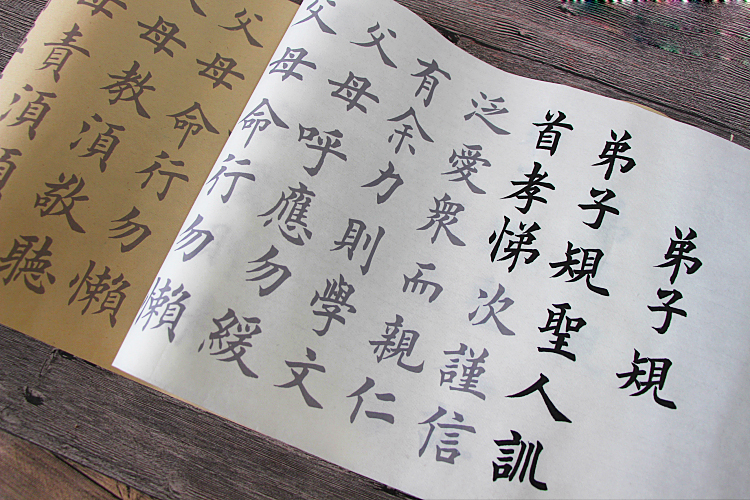 弟子規
弟子規聖人訓
首孝悌次謹信
泛愛衆而親仁
有余力則學文
父母呼應勿緩
父母命行勿懶
父母命行勿懶
父母教湏敬聽
母責湏順